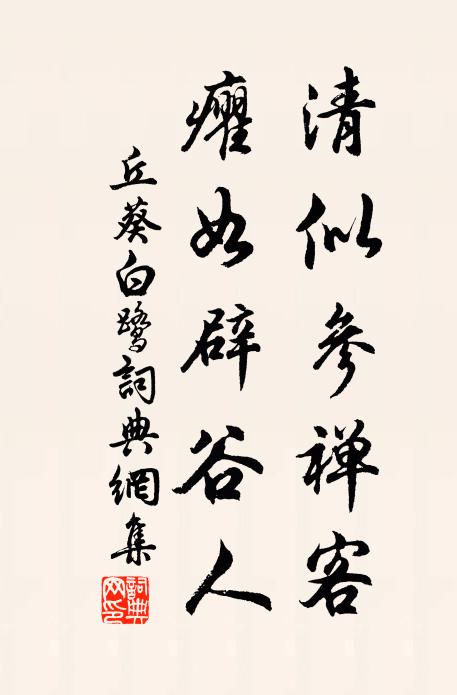 清似參禅客
癯如辟谷人
丘葵白鷺詞典網集
詞典网印